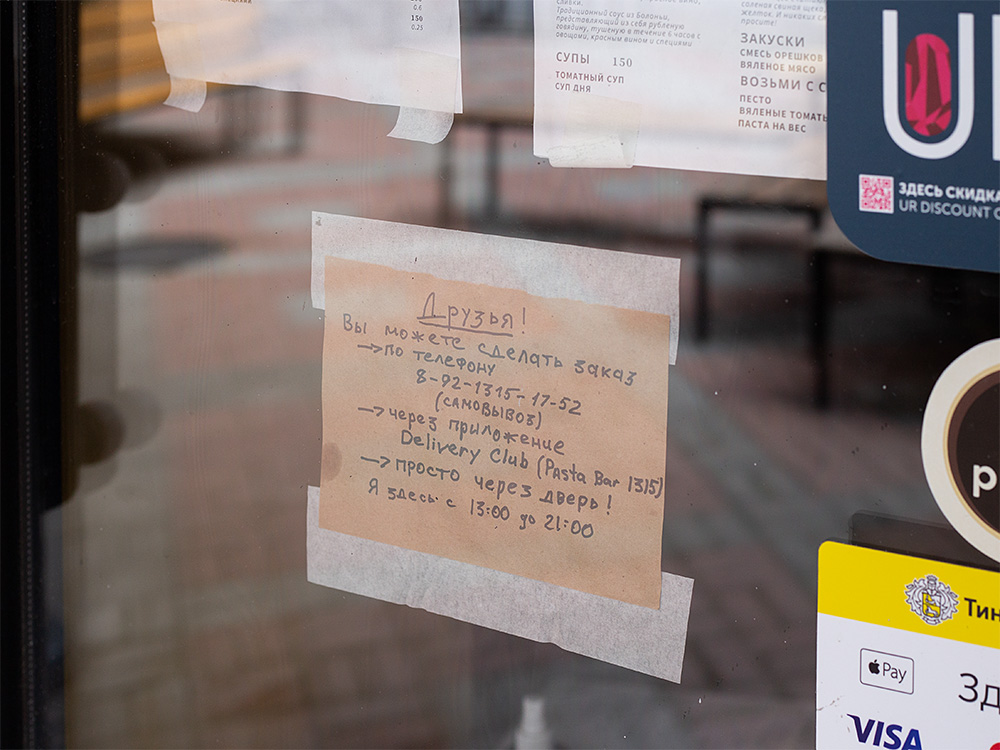 0.6
150
0.25
Традиционный соус из Болоньи,
представляющий из себя рубленую
говядину, тушеную в течение 6 часов с
овощами, красным вином и специями
СУПЫ 150
ТОМАТНЫЙ СУП
СУП ДНЯ
соленая свиная щека,
желток. И никаких сл
просите!
ЗАКУСКИ
СМЕСЬ ОРЕШКОВ
ВЯЛЕНОЕ МЯСО
ВОЗЬМИ С С
ПЕСТО
ВЯЛЕНЫЕ ТОМАТЫ
ПАСТА НА ВЕС
U
ЗДЕСЬ СКИДКА
UR DISCOUNT
Друзья!
Вы можете сделать заказ
→по телефону
8-92-1315-17-52
(самовывоз)
→через приложение
Delivery Club (Pasta Bar 1315)
→просто через дверь!
Я здесь с 13:00 до 21:00
p
Тин
Pay
Зд
VISA